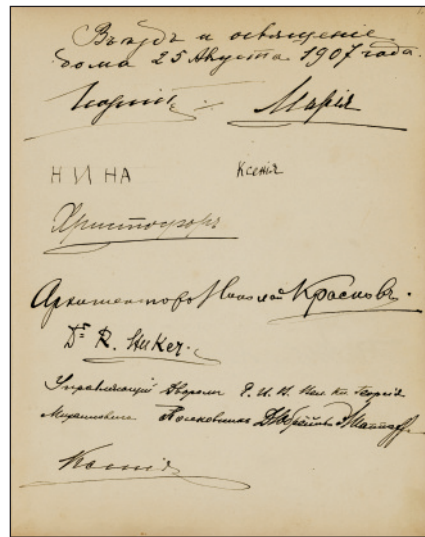 Въѣздъ и освященіе
дома 25 Августа 1907 года.
Георгій Марія
НИНА Ксенія
Христофоръ
Архитекторъ Николай Красновъ.
Dr R. Stuker.
Управляющій Дворомъ Е. И. В. Вел. Кн. Георгія
Михаиловича Полковникъ
Ксенія